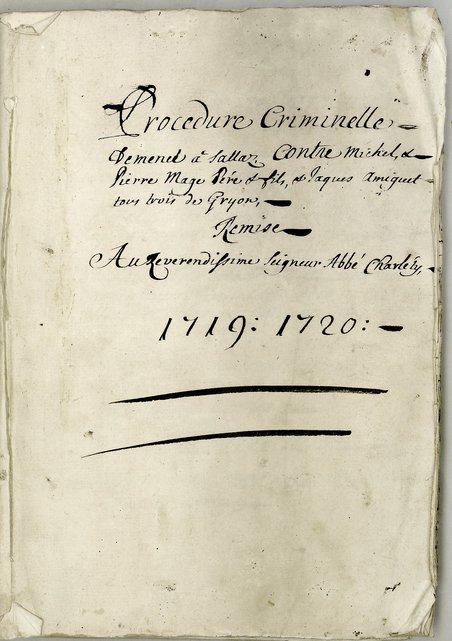 Procedure Criminelle
Demenet à Sallaz Contre Michel, &
Pierre Mage Père & fils, & Jaques Amiguet
tous trois de Gryon,
Remise
Au Reverendissime Seigneur Abbé Charlety,
1719: 1720: